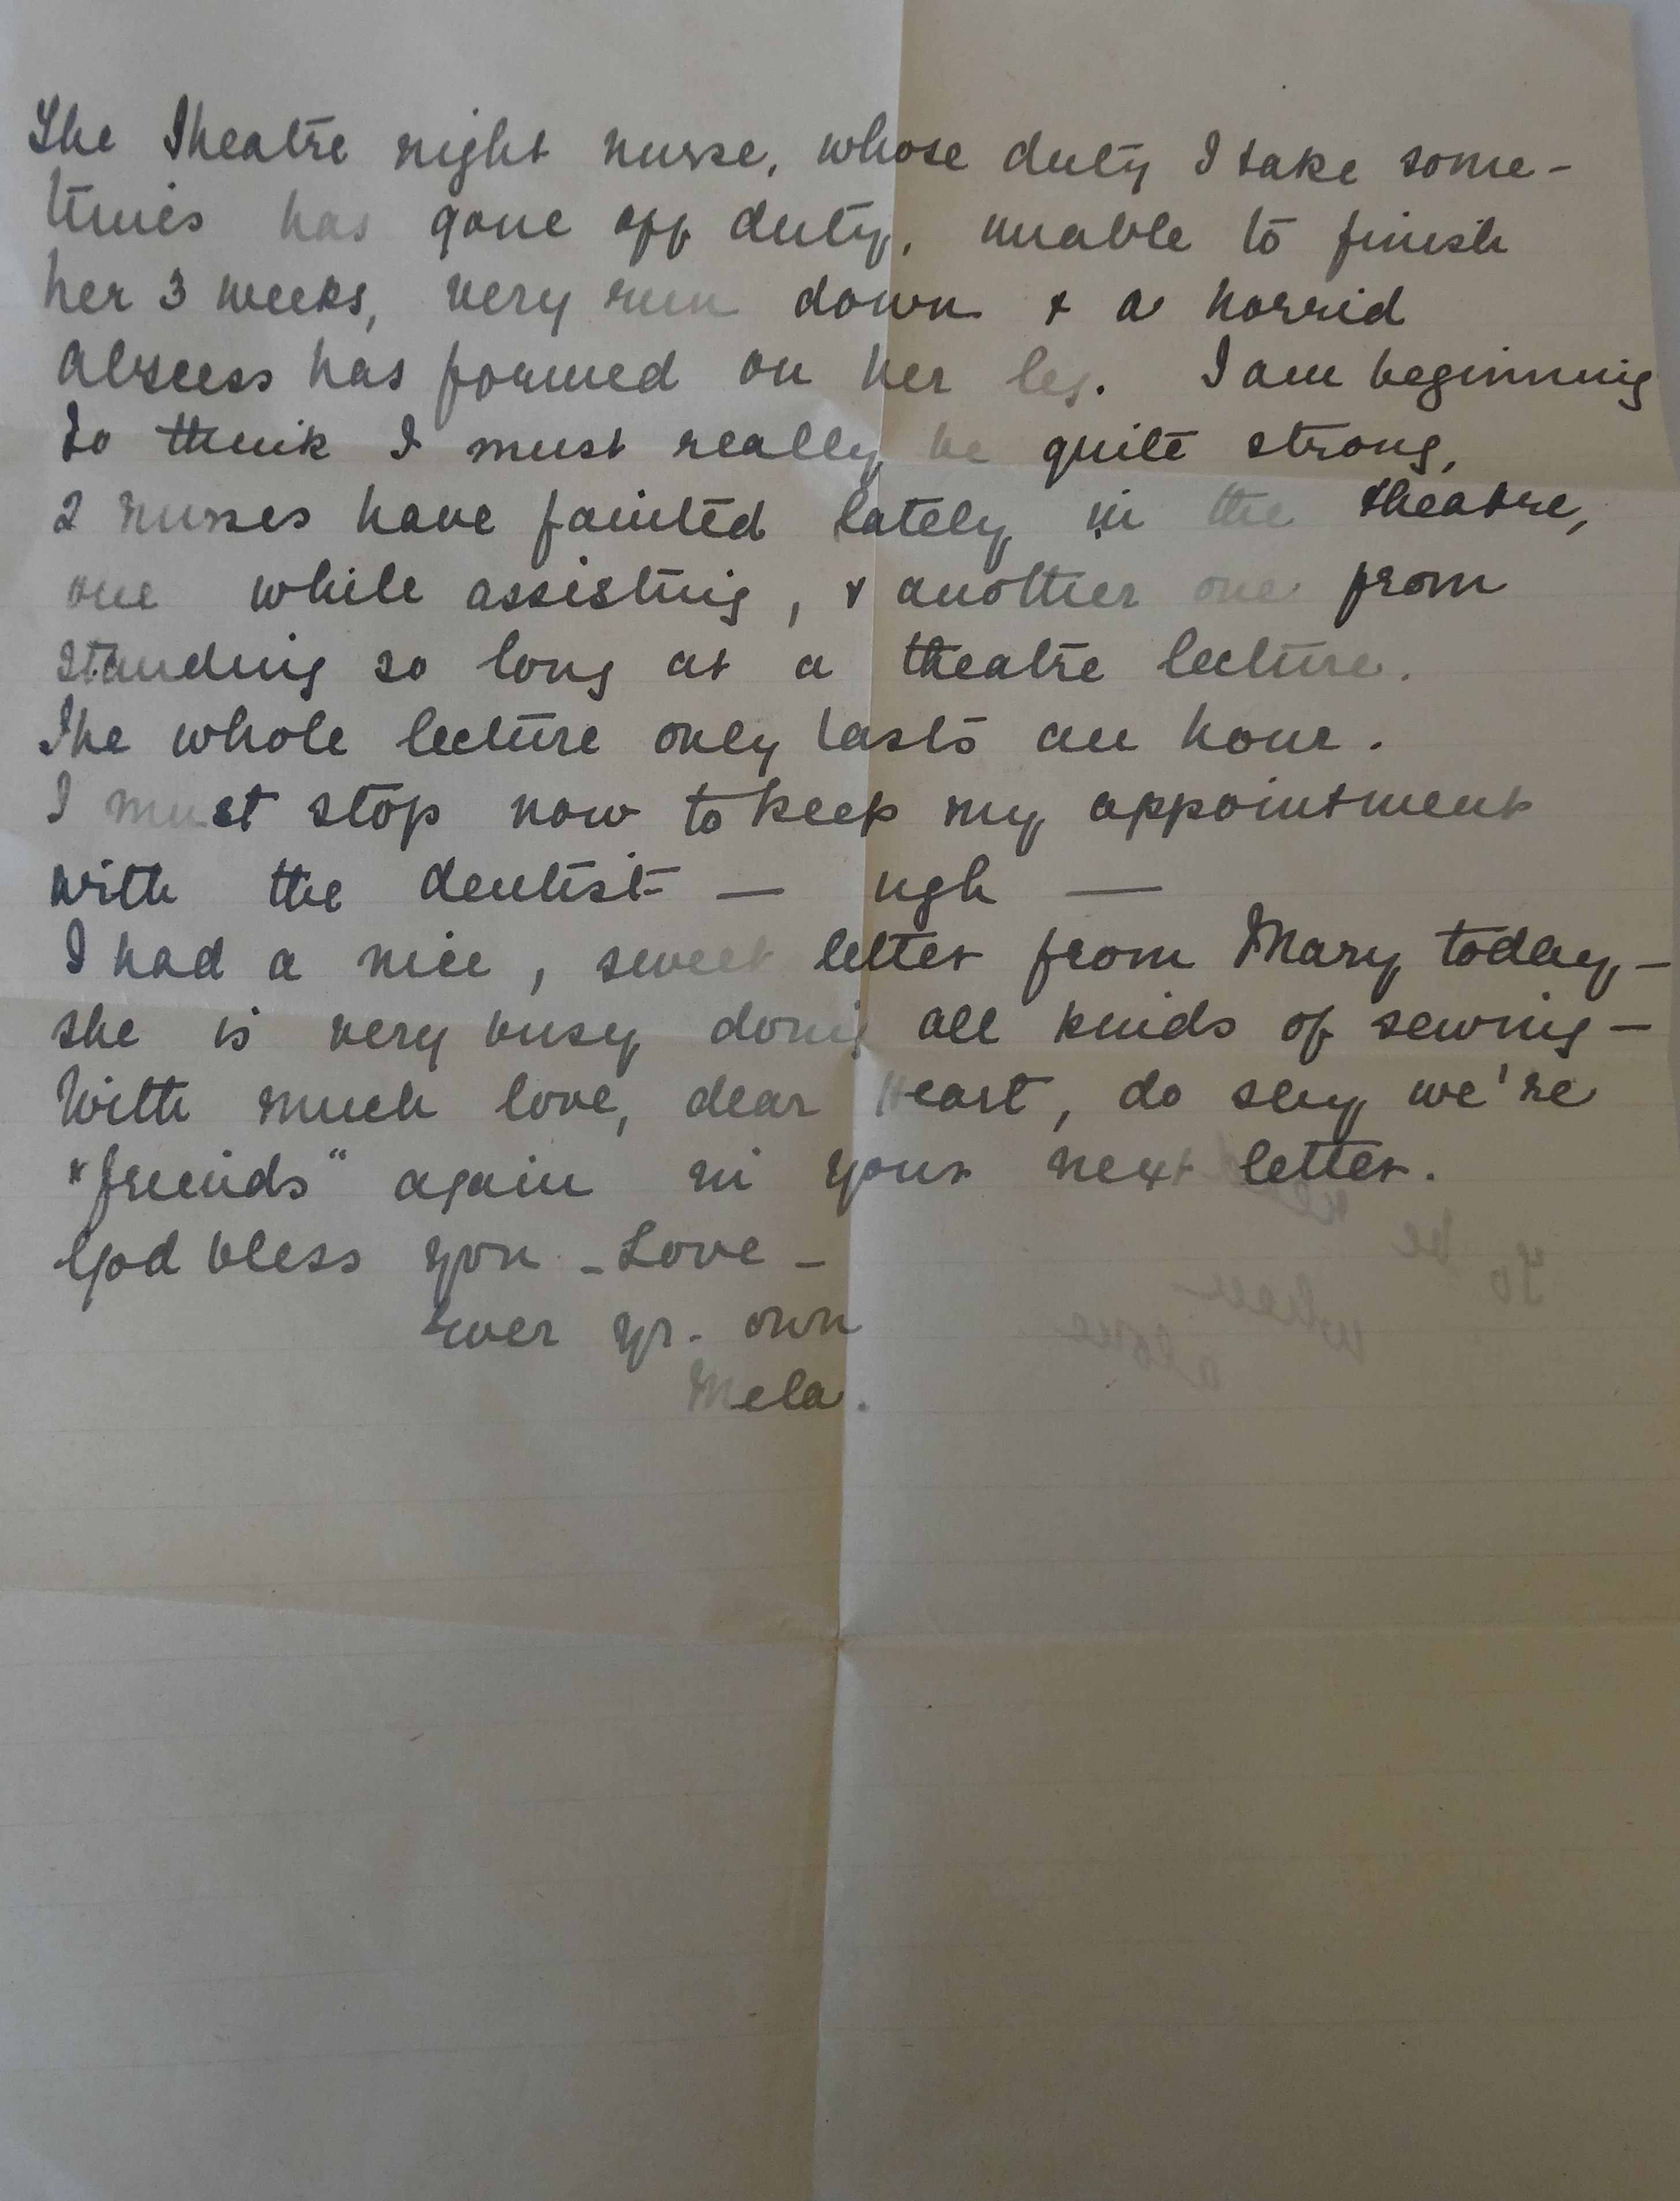 The Theatre night nurse, whose duty I take some-
times has gone off duty, unable to finish
her 3 weeks, very run down & a horrid
abscess has formed on her leg. I am beginning
to think I must really be quite strong,
2 nurses have fainted lately in the theatre,
one while assisting, & another one from
standing so long at a theatre lecture.
The whole lecture only lasts an hour.
I must stop now to keep my appointment
with the dentist — ugh —
I had a nice, sweet letter from Mary today, —
she is very busy doing all kinds of sewing —
With much love, dear Heart, do say we're
"friends" again in your next letter.
God bless you - Love -
Ever yr. own
Mela.
To be read
when
alone